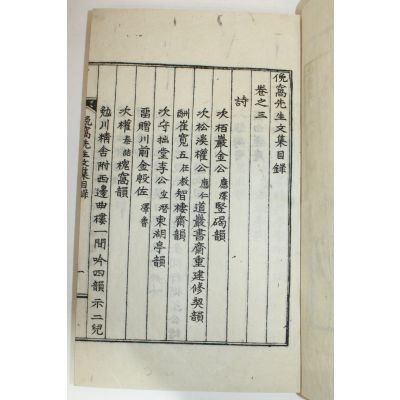 俛窩先生文集目錄
卷之三
詩
次栢巖金公應澤竪碣韻
次松溪權公應仁道叢書齋重建修契韻
酬崔寬五在敎智棲齋韻
次守拙堂李公東湖亭韻
留贈川前金毅佐澤耆
次權泰喆槐窩韻
勉川精舍附西邊曲樓一間吟四韻示二兒
俛窩先生文集目錄
一